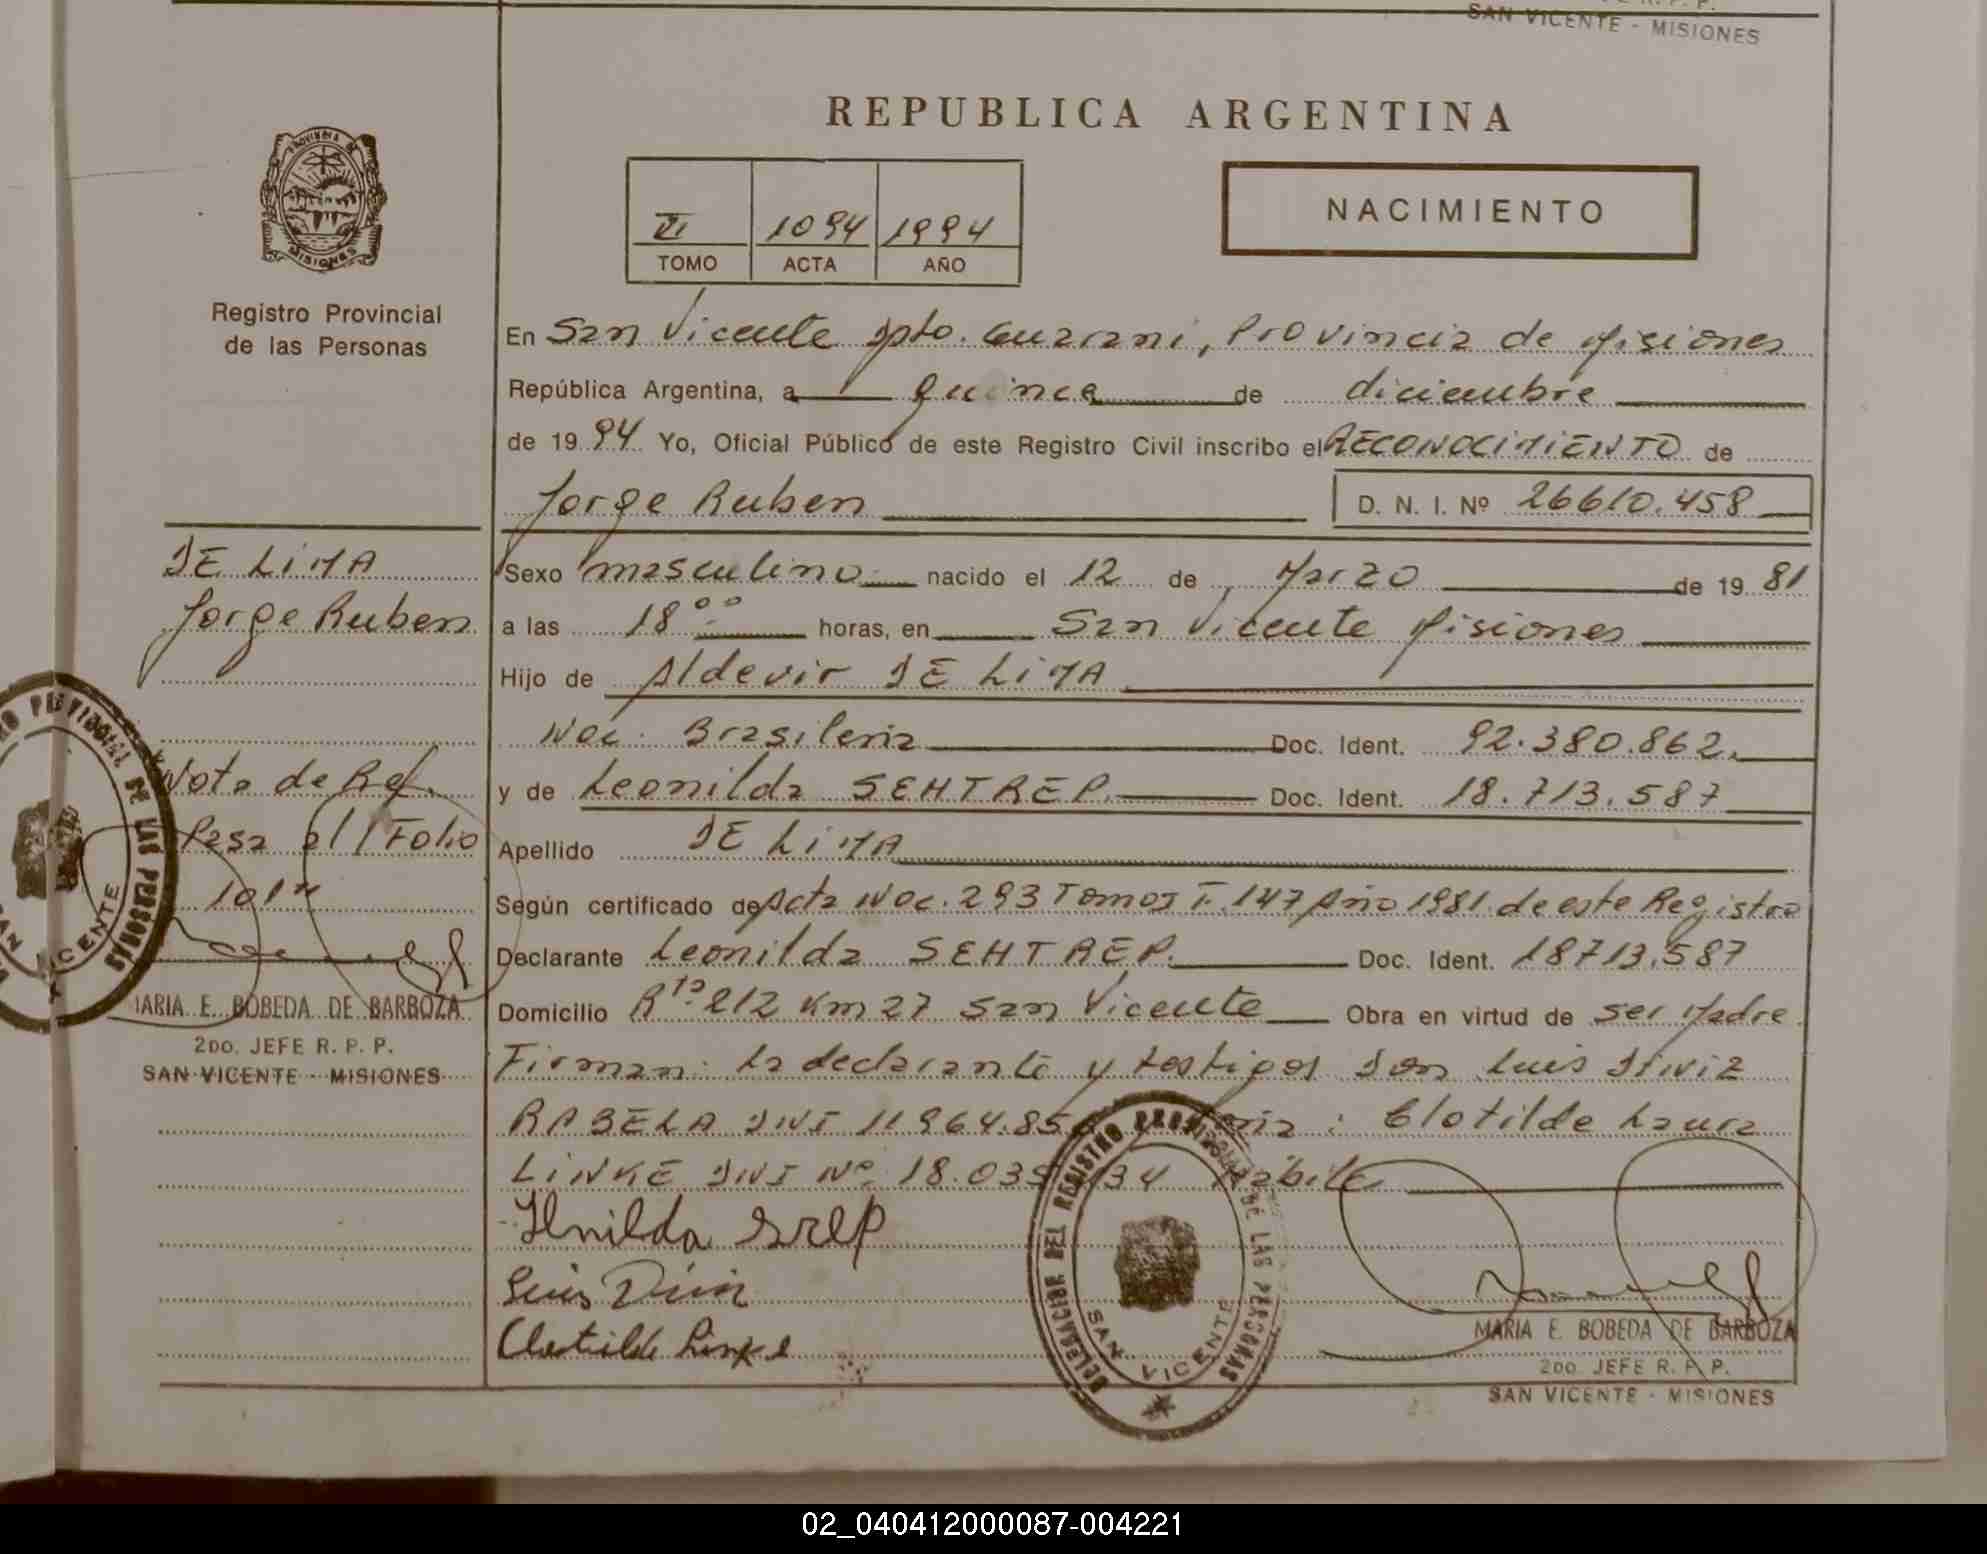 SAN VICENTE - MISIONES
REPUBLICA ARGENTINA
PROVINCIA DE
MISIONES
VI 1094 1994
TOMO ACTA AÑO
NACIMIENTO
Registro Provincial
de las Personas
En San Vicente Dpto. Guarani, Provincia de Misiones
República Argentina, a quince de diciembre
de 1994 Yo, Oficial Público de este Registro Civil inscribo el RECONOCIMIENTO de
Jorge Ruben D. N. I. Nº 26610.458
DE LIMA
Jorge Ruben
Sexo masculino nacido el 12 de Marzo de 1981
a las 18°° horas, en San Vicente Misiones
Hijo de Aldevir DE LIMA
Nac. Brasilera Doc. Ident. 92.380.862.
y de Leonilda SEHTREP. Doc. Ident. 18.713.587
Apellido DE LIMA
Según certificado de Acta Nac. 293 Tomos I. 147 Año 1981 de este Registro
Declarante Leonilda SEHTREP. Doc. Ident. 18713.587
Domicilio Rta 212 Km 27 San Vicente Obra en virtud de ser Madre
Firman: La declarante y testigos Don Luis
RABELA DNI 11964.85 : Clotilde Laura
LINKE DNI Nº 18.035 34 Habile
Nota de Ref.
Pasa al Folio
101"
MARIA E. BOBEDA DE BARBOZA
2DO. JEFE R. P. P.
SAN VICENTE - MISIONES
Clotilde Linke
DELEGACION DEL REGISTRO PROVINCIAL DE LAS PERSONAS
SAN VICENTE
MARIA E. BOBEDA DE BARBOZA
2DO. JEFE R. P. P.
SAN VICENTE - MISIONES
02_040412000087-004221